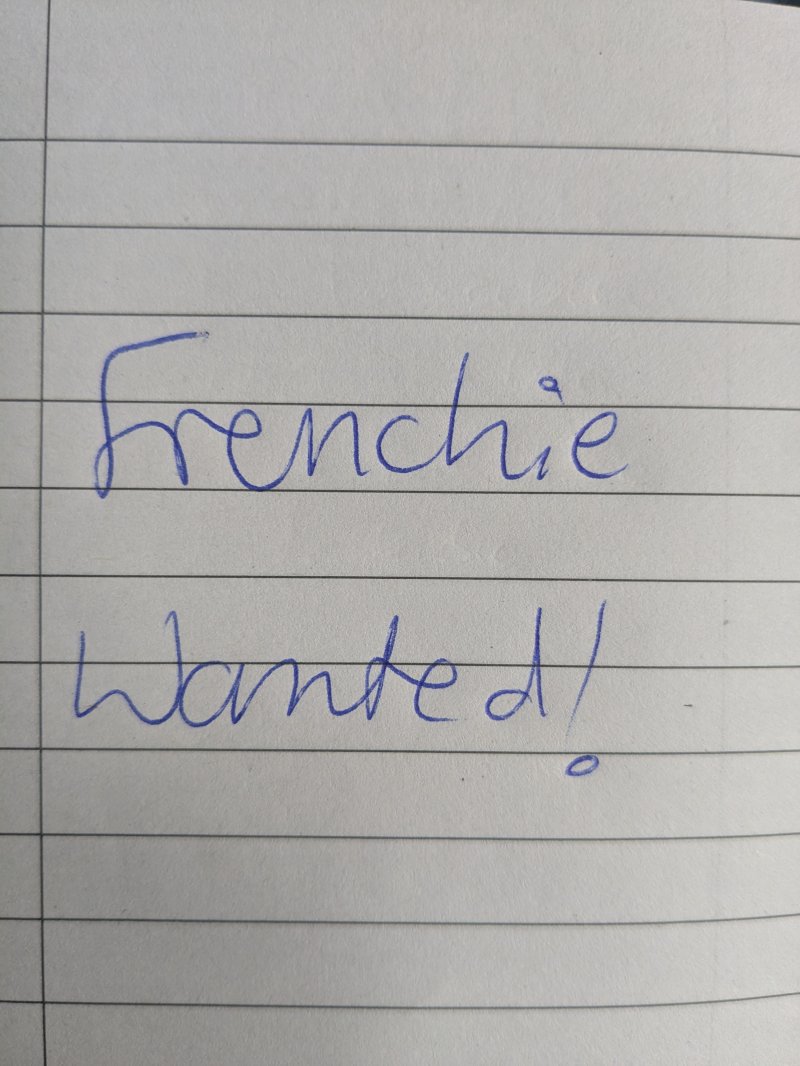 Frenchie
Wanted!